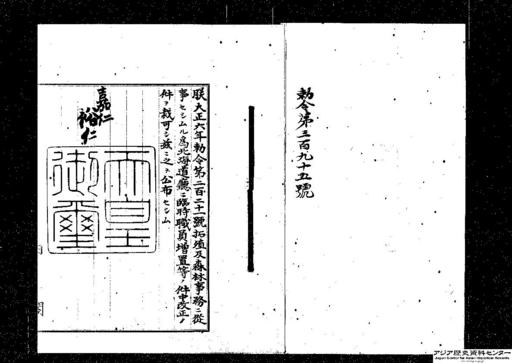 勅令第三百九十五號
朕大正六年勅令第二百二十一號拓殖及森林事務ニ從
事セシムル爲北海道廳ニ臨時職員増置等ノ件中改正ノ
件ヲ裁可シ茲ニ之ヲ公布セシム
嘉仁
裕仁
天皇
御璽
アジア歴史資料センター
Japan Center for Asian Historical Records